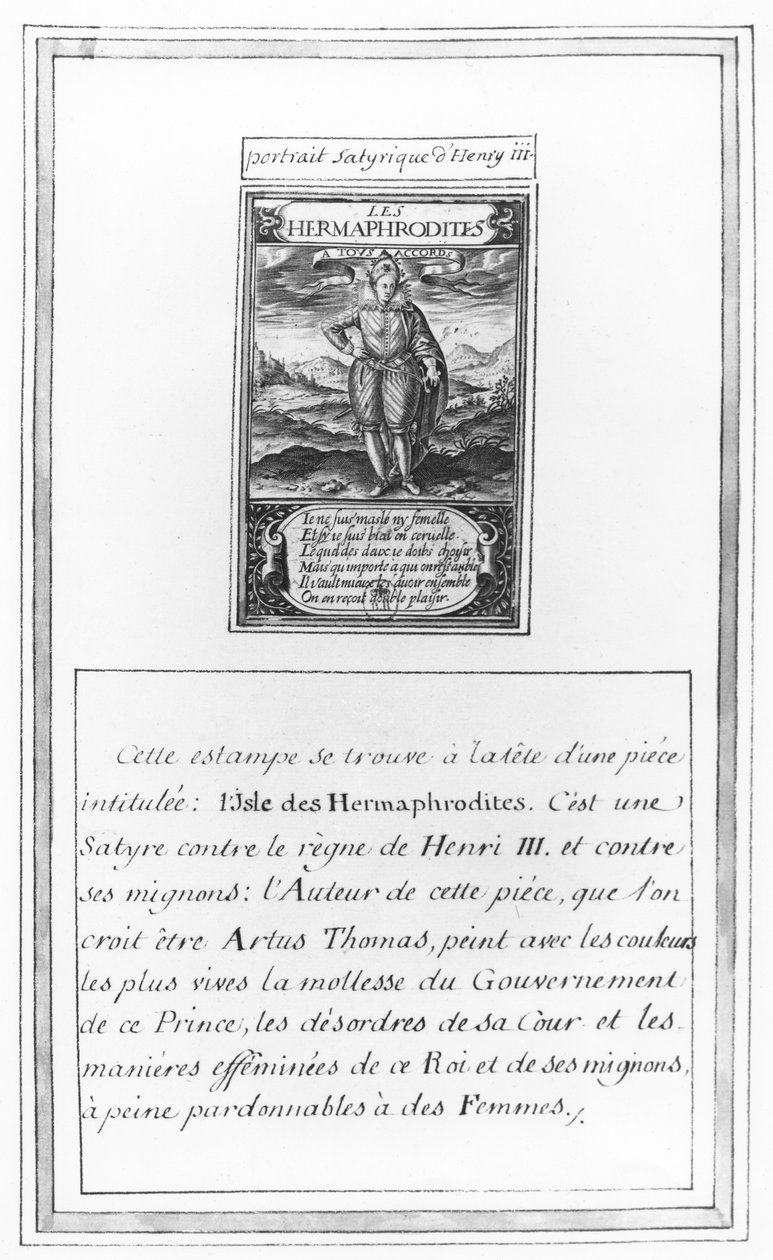 portrait Satyrique d'Henry iii.
LES
HERMAPHRODITES
A TOVS ACCORDS
Ie ne suis masle ny femelle
Et sy ie suis bien en ceruelle
Lequel des deux ie doibs choysir
Mais qu'importe a qui on ressemble
Il vault mieux les auoir ensemble
On en reçoit double plaisir.
Cette estampe se trouve à la tête d'une piéce
intitulée: l'Isle des Hermaphrodites. C'est une
Satyre contre le règne de Henri III. et contre
ses mignons: l'Auteur de cette piéce, que l'on
croit être Artus Thomas, peint avec les couleurs
les plus vives la mollesse du Gouvernement
de ce Prince, les désordres de sa Cour et les
maniéres efféminées de ce Roi et de ses mignons,
à peine pardonnables à des Femmes./.